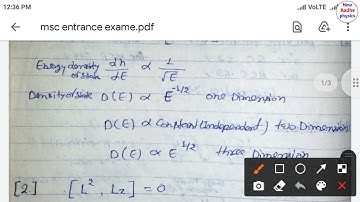 12:36 PM
VoLTE
New Radha physics
msc entrance exame.pdf
Energy density of state dn/dE ∝ 1/√E
1/3
Density of state D(E) ∝ E^-1/2 one Dimension
D(E) ∝ Constant (independent) two Dimension
D(E) ∝ E^1/2 three Dimension
[2] [L², Lz] = 0